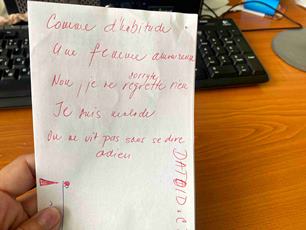 Comme d'habitude
Une femme amoureuse
Non, je ne regrette rien
Je suis malade
On ne vit pas sans se dire
adieu